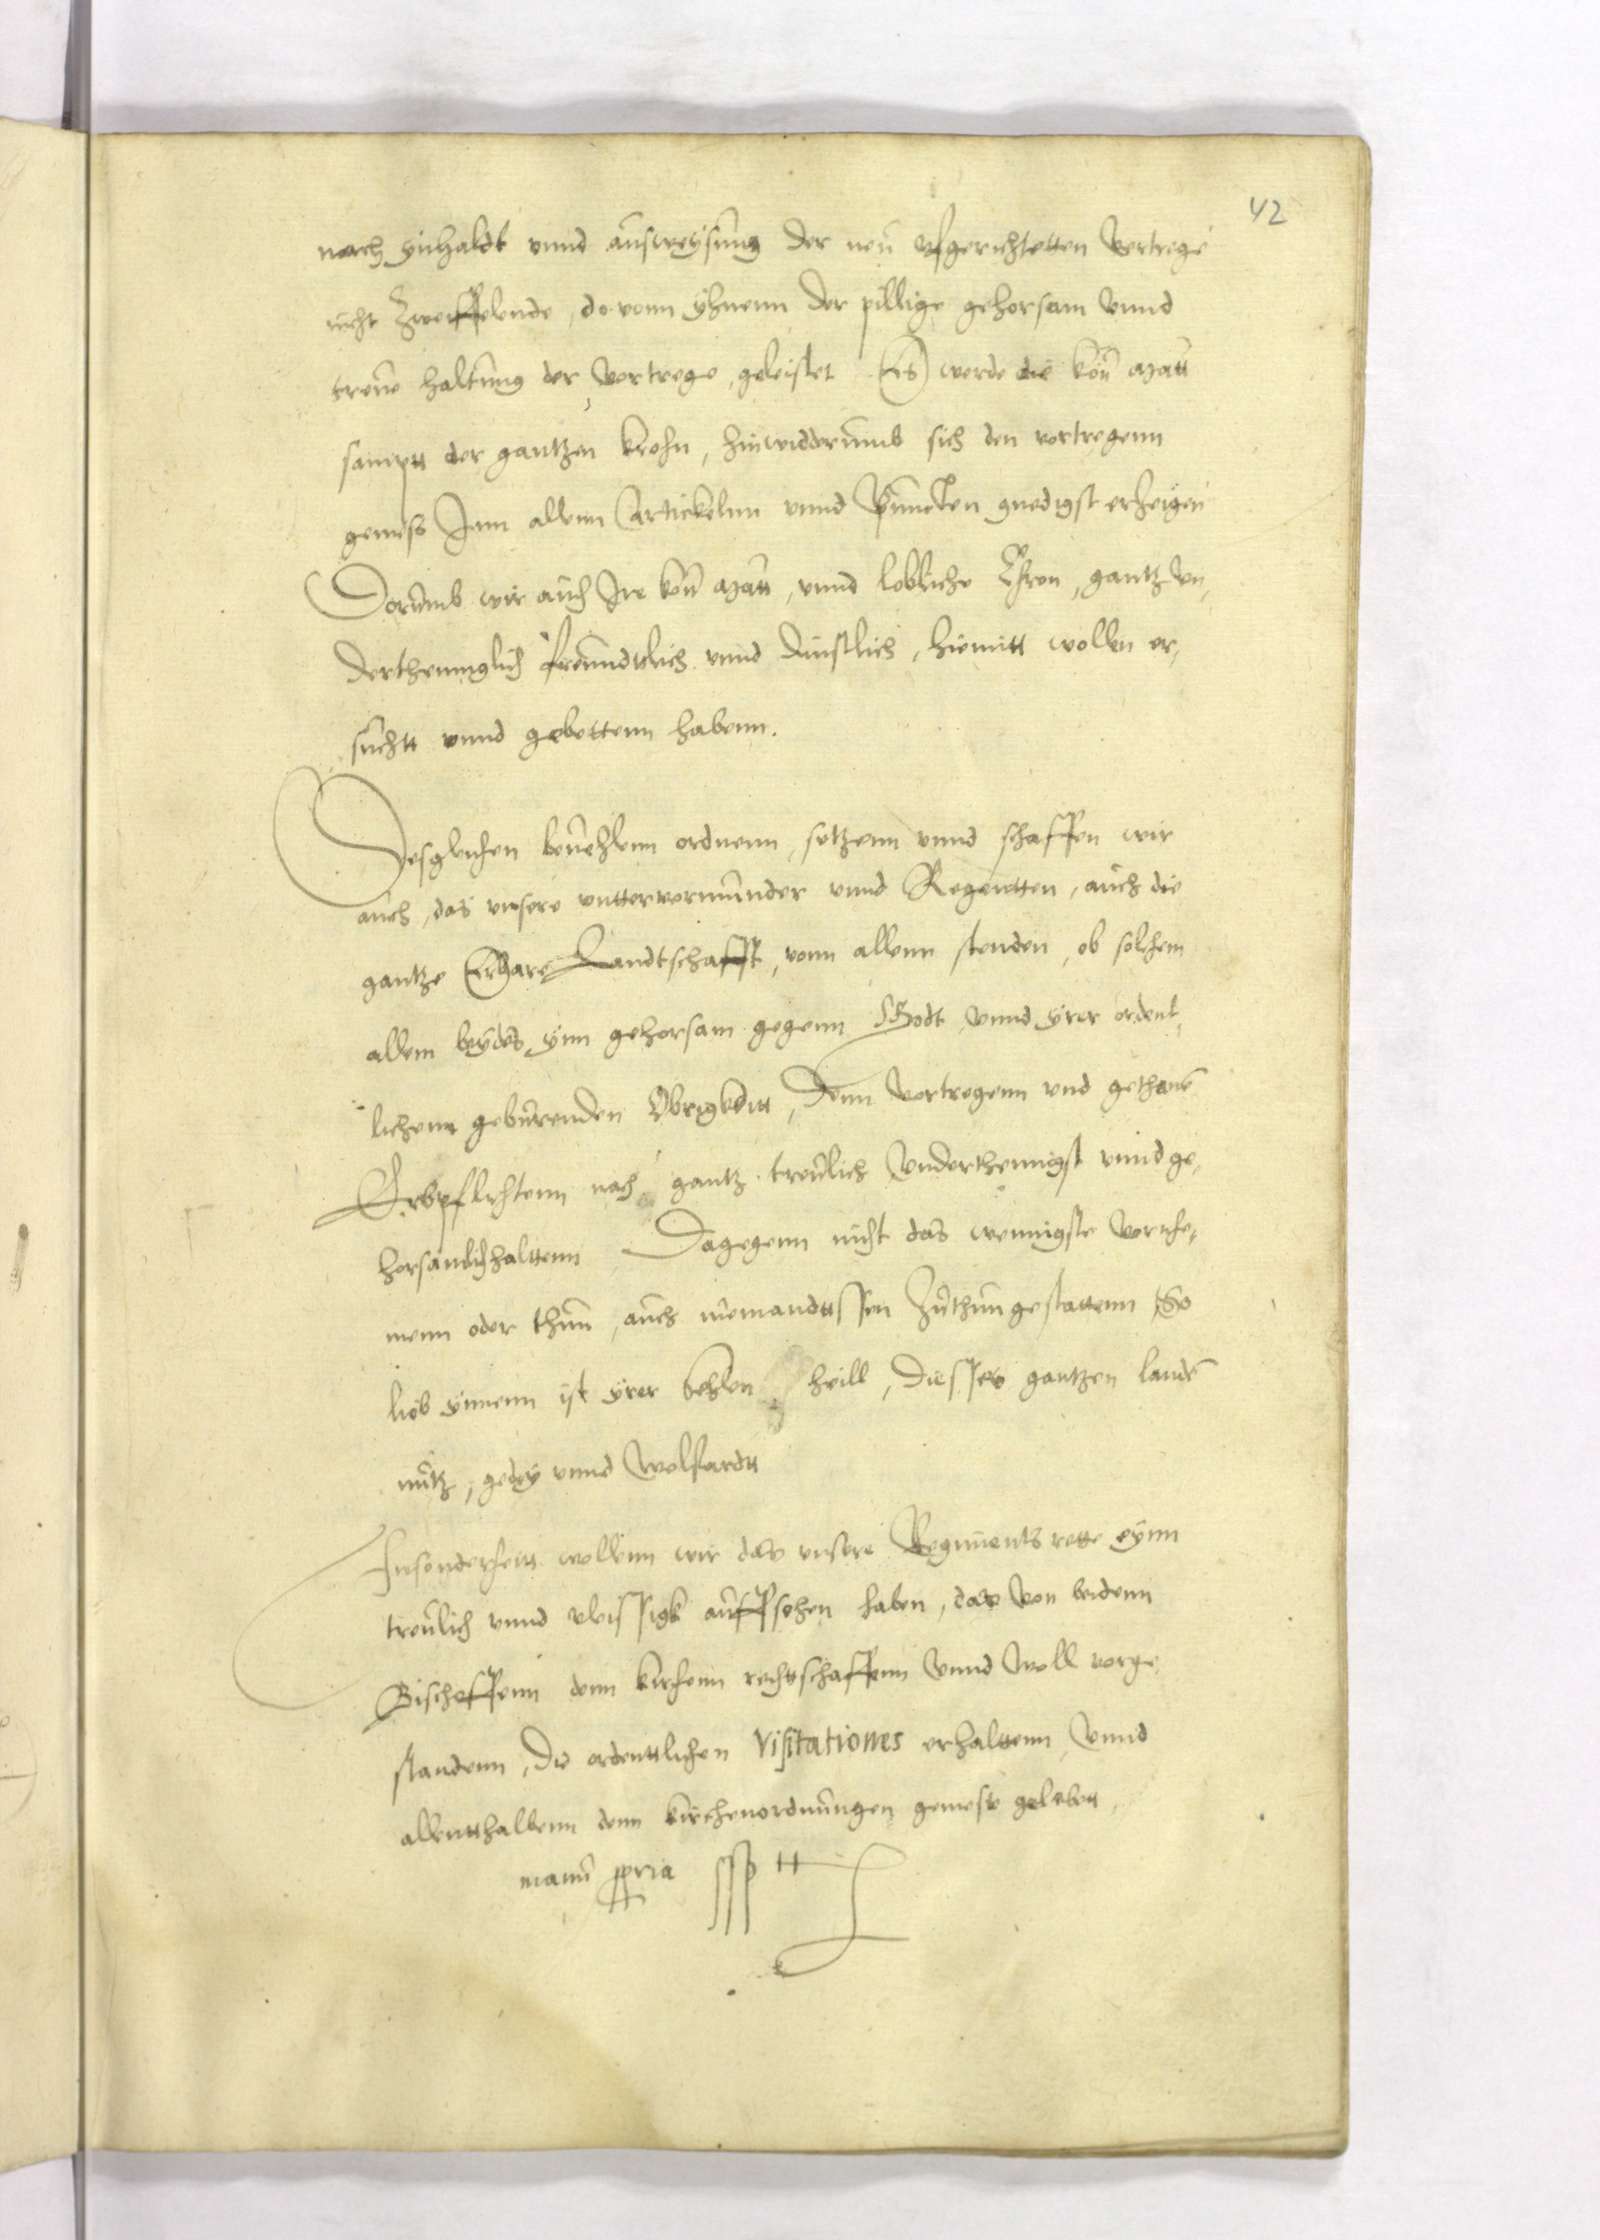 42
nach ynhaldt vnnd ausweysung der neu vfgerichtetten Vertrege
nicht Zweiffelende, do vonn yhnenn der pillige gehorsam vnnd
treue haltung der Vertrege, geleistet Es werde die kön Matt
samptt der gantzen krohn, hinwidderumb sich den vortregenn
gemess Jnn allenn Artickelnn vnnd Puncten gnedigst erzeigen
Dorumb wir auch Jre kön Matt, vnnd lobliche Chron, gantz vn,
dertheniglich freundtlich vnnd dinstlich, hiemitt wollen er,
suchtt vnnd gebettenn habenn.
Desgleichen beuehlenn ordnenn, setzenn vnnd schaffen wir
auch, das vnsere vnttervormunder vnnd Regentten, auch die
gantze Erbare Landtschafft, vonn allenn stenden, ob solchem
allem beydes ynn gehorsam gegenn Godt vnnd yrer ordent,
lichenn geburenden Obrigkeitt, Denn Vertregenn vnd gethanen
Erbpflichtenn nach gantz treulich Vnderthenigst vnnd ge,
horsamlich halttenn Dagegenn nicht das wennigste Vorneh,
menn oder thun, auch niemandtssen Zuthun gestattenn So
lieb ynnenn ist yrer sehlen heill, Diesses gantzen landes
nutz, gedey vnnd Wolfardtt
Jnsonderheitt wollenn wir das vnsere Regiments rette eynn
treulich vnnd vleissigk auffsehen haben, das von beidenn
Bischeffenn denn kirchenn rechttschaffenn Vnnd Woll vorge,
standenn, Die ordenttlichen Visitationes erhalttenn, Vnnd
allentthalbenn denn kirchenordnungen gemess gelebtt,
manu ppria sspt